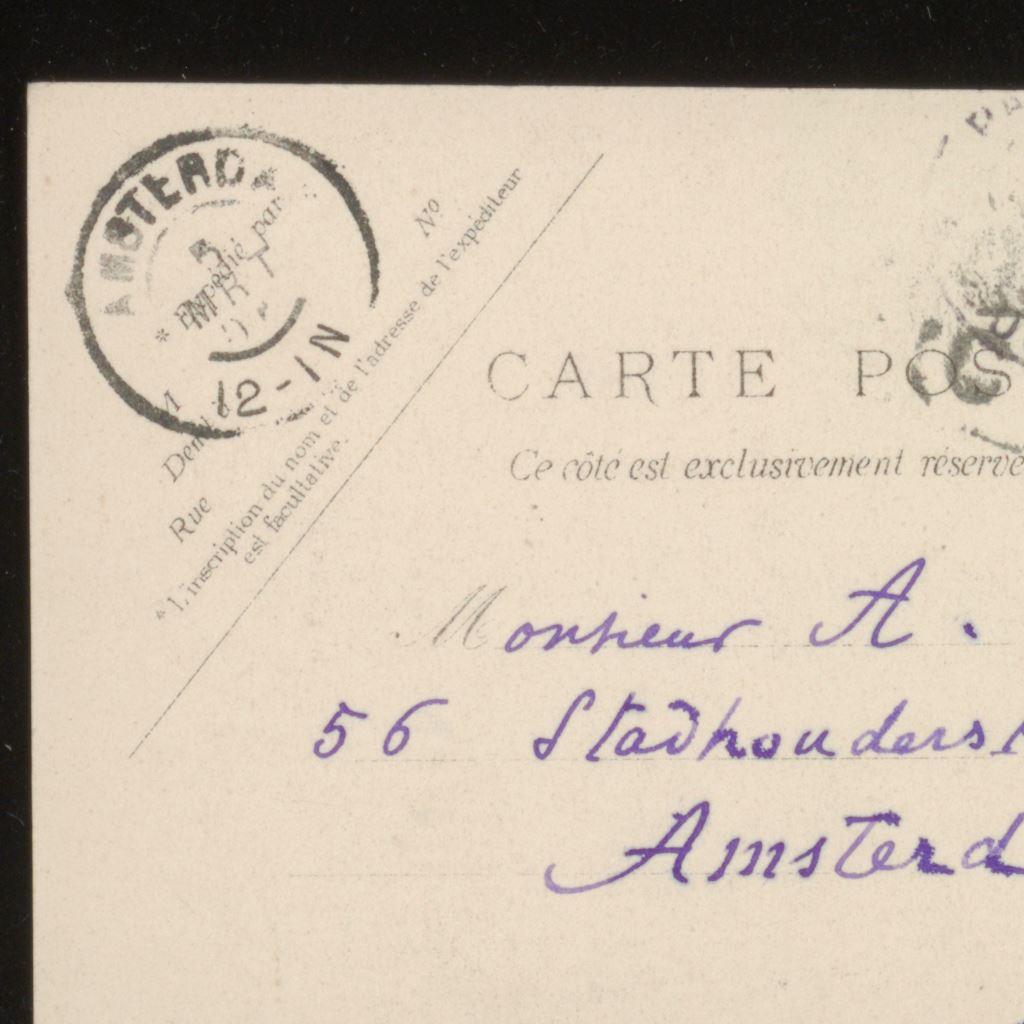 AMSTERDA
5
MRT
12-1N
* Expédié par
M
Dem
Rue
No
* L'inscription du nom et de l'adresse de l'expéditeur
est facultative.
CARTE POS
Ce côté est exclusivement réservé
Monsieur A.
56 Stadhouders
Amsterd